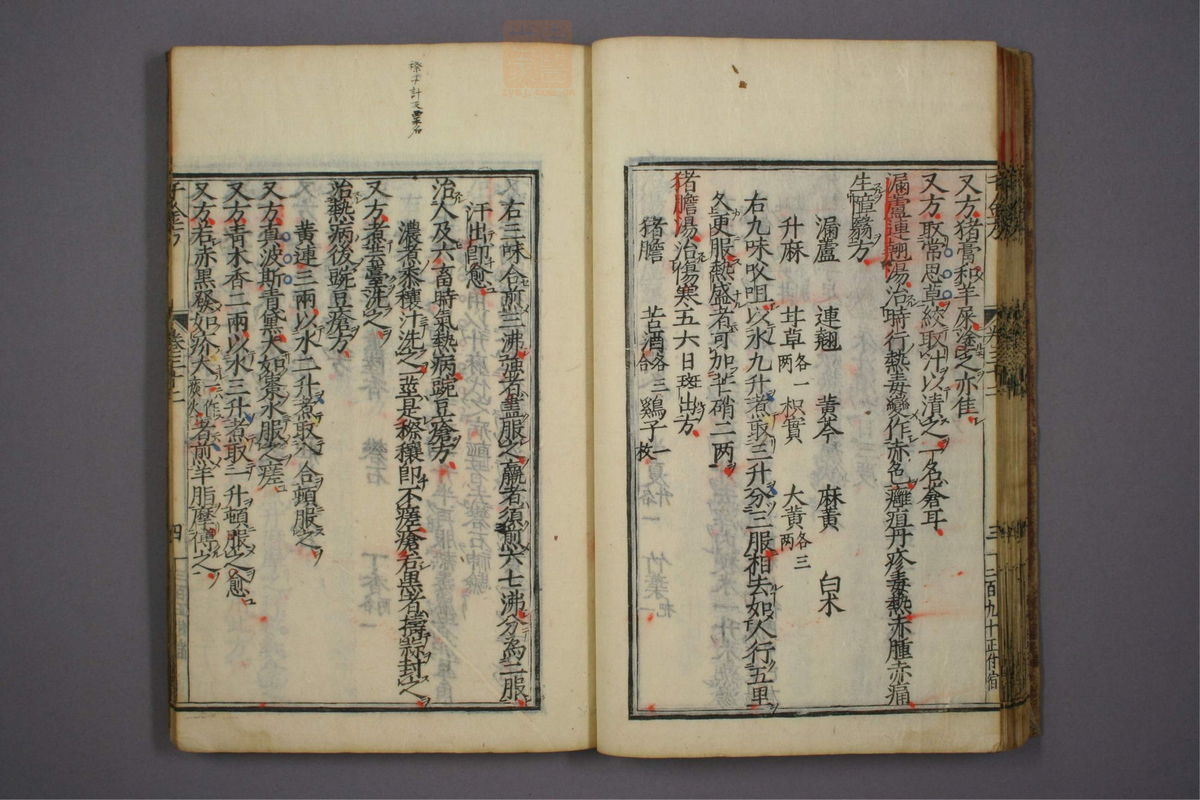 又方猪膏和羊屎塗之亦佳
又方取常思草絞取汁以漬之一名倉耳
漏盧連翹湯治時行熱毒變作赤色癰疽丹疹毒熱赤腫赤痛
生障翳方
漏盧 連翹 黃芩 麻黃 白木
升麻 甘草各一两 枳實 大黃各三两
右九味㕮咀以水九升煮取三升分三服相去如人行五里
久更服熱盛者可加芒硝二两
猪膽湯治傷寒五六日斑出方
猪膽 苦酒各三合 鷄子一枚
右三味合煎三沸強者盡服之羸者須煎六七沸分爲二服
汗出即愈
治人及六畜時氣熱病豌豆瘡方
濃煮黍穰汁洗之一莖是穄穰即不瘥瘡若黑者擣蒜封之
又方煮芸薹洗之
治熱病後豌豆瘡方
黃連三兩以水二升煮取八合頓服之
又方真波斯青黛大如棗水服之瘥
又方青木香二兩以水三升煮取一升頓服之愈
又方若赤黑發如疥大者煎羊脂摩傅之
千金方 卷三十二 四